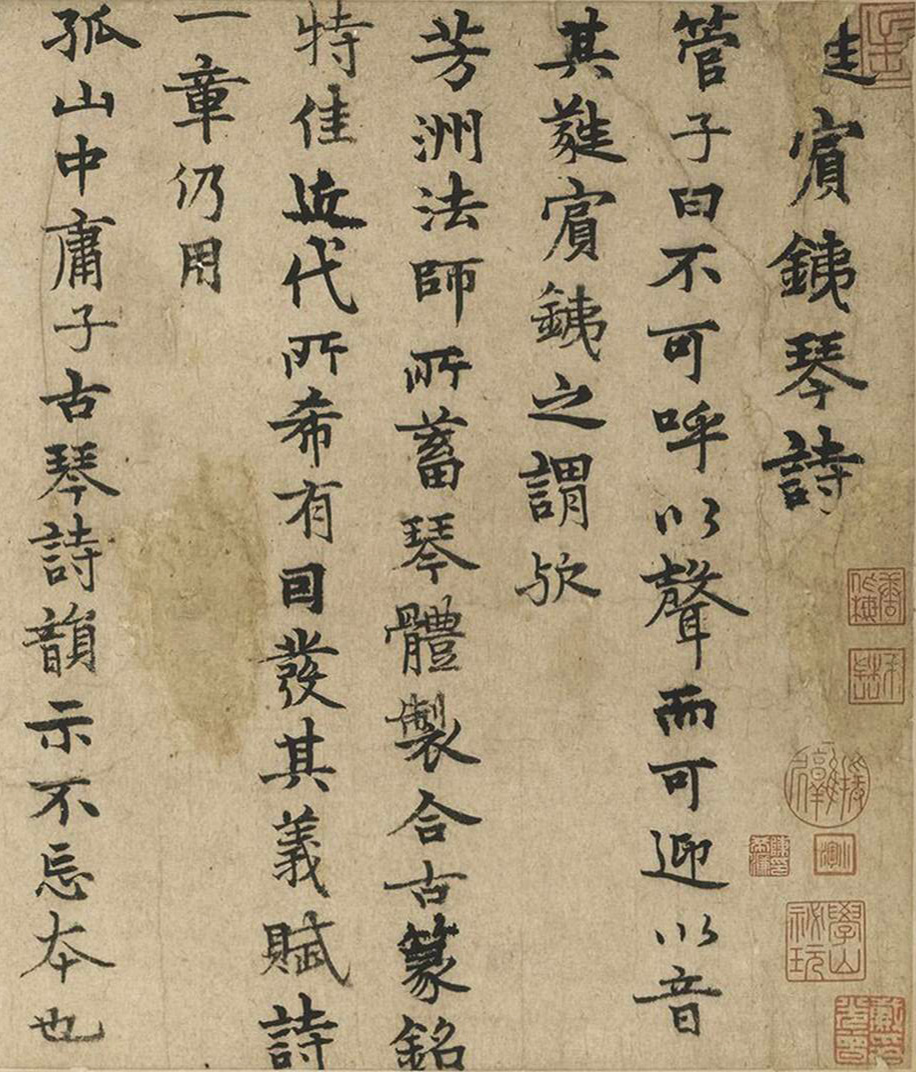 賔銕琴詩
管子曰不可呼以聲而可迎以音
其蕤賔銕之謂欤
芳洲法師所蓄琴體製合古篆銘
特佳近代所希有因發其義賦詩
一章仍用
孤山中庸子古琴詩韻示不忘本也
學山祕玩